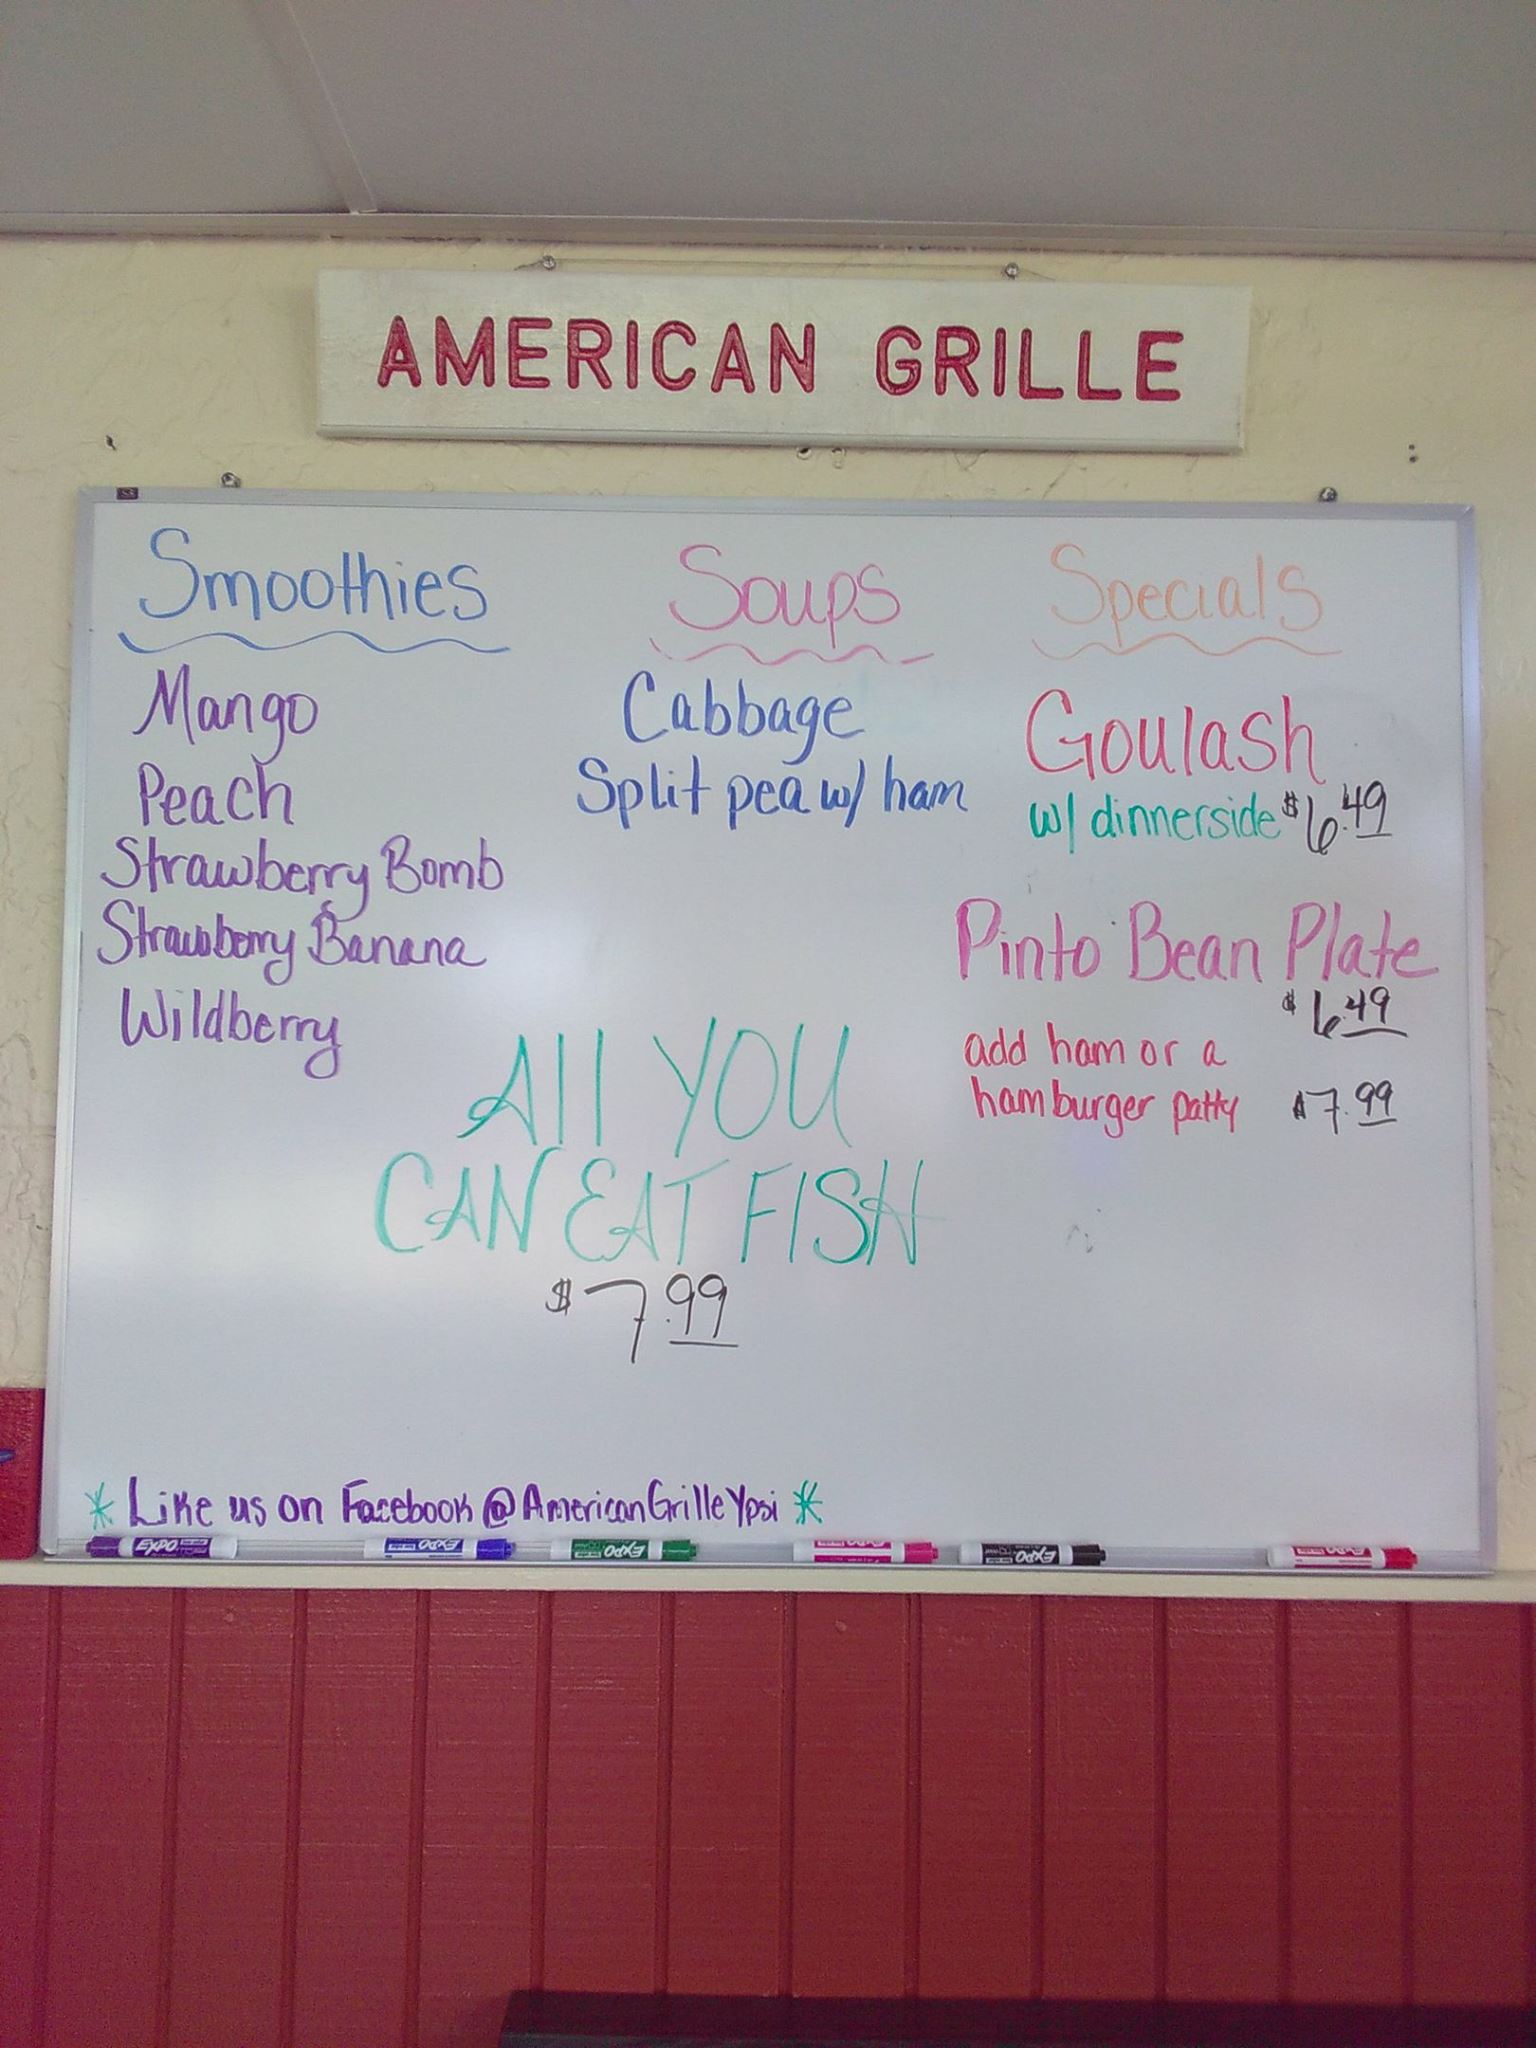 AMERICAN GRILLE
Smoothies
Mango
Peach
Strawberry Bomb
Strawberry & Banana
Wildberry
Soups
Cabbage
Split pea w/ ham
Specials
Goulash
w/ dinnerside $6.49
Pinto Bean Plate
$6.49
add ham or a
hamburger patty $7.99
All YOU
CAN EAT FISH
$7.99
* Like us on Facebook @AmericanGrilleYpsi *
EXPO
EXPO
EXPO
EXPO